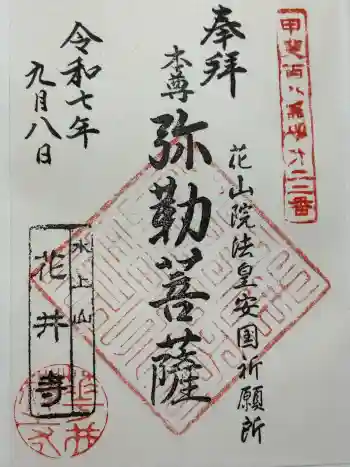 甲斐百八霊場第二二番
奉拝
花山院法皇安国祈願所
本尊
弥勒菩薩
令和七年
九月八日
水上山
花井寺